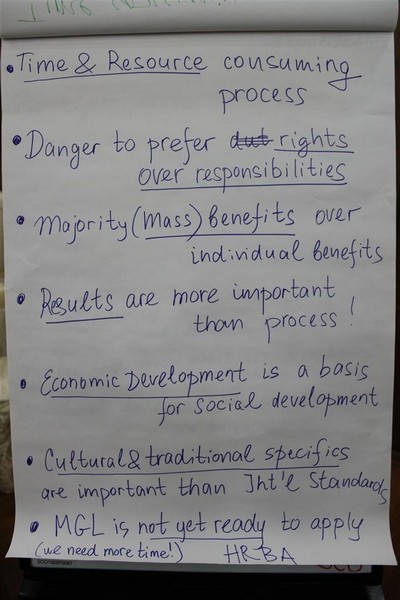 • Time & Resource consuming
process
• Danger to prefer rights
over responsibilities
• Majority (Mass) benefits over
individual benefits
• Results are more important
than process!
• Economic Development is a basis
for social development
• Cultural & traditional specifics
are important than Int'l Standards
• MGL is not yet ready to apply
(we need more time!) HRBA